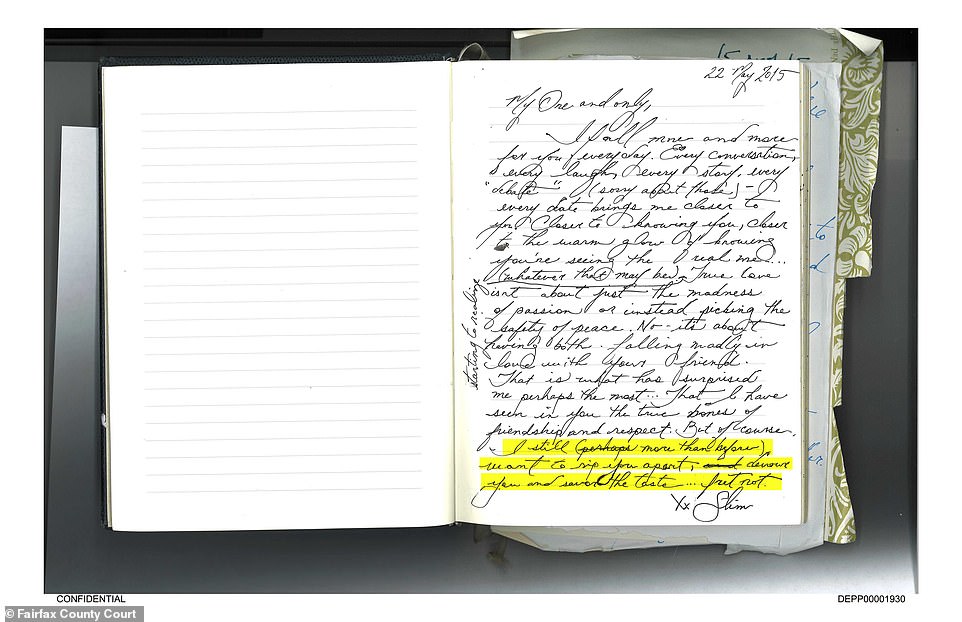 22 May 2015
My One and only,
I fall more and more
for you everyday. Every conversation,
every laugh, every story, every
"debate" (sorry about those) - 
every date brings me closer to
you. Closer to knowing you, closer
to the warm glow of knowing
you're seeing the real me...
(whatever that may be). True love
isnt about just the madness
of passion or instead picking the
safety of peace. No - its about
having both. falling madly in
love with your friend.
That is what has surprised
me perhaps the most... That I have
seen in you the true bones of
friendship and respect. But of course,
I still (perhaps more than before)
want to rip you apart, and devour
you and savor the taste ... fret not.
Xx Slim
starting to realize
CONFIDENTIAL
DEPP00001930
© Fairfax County Court